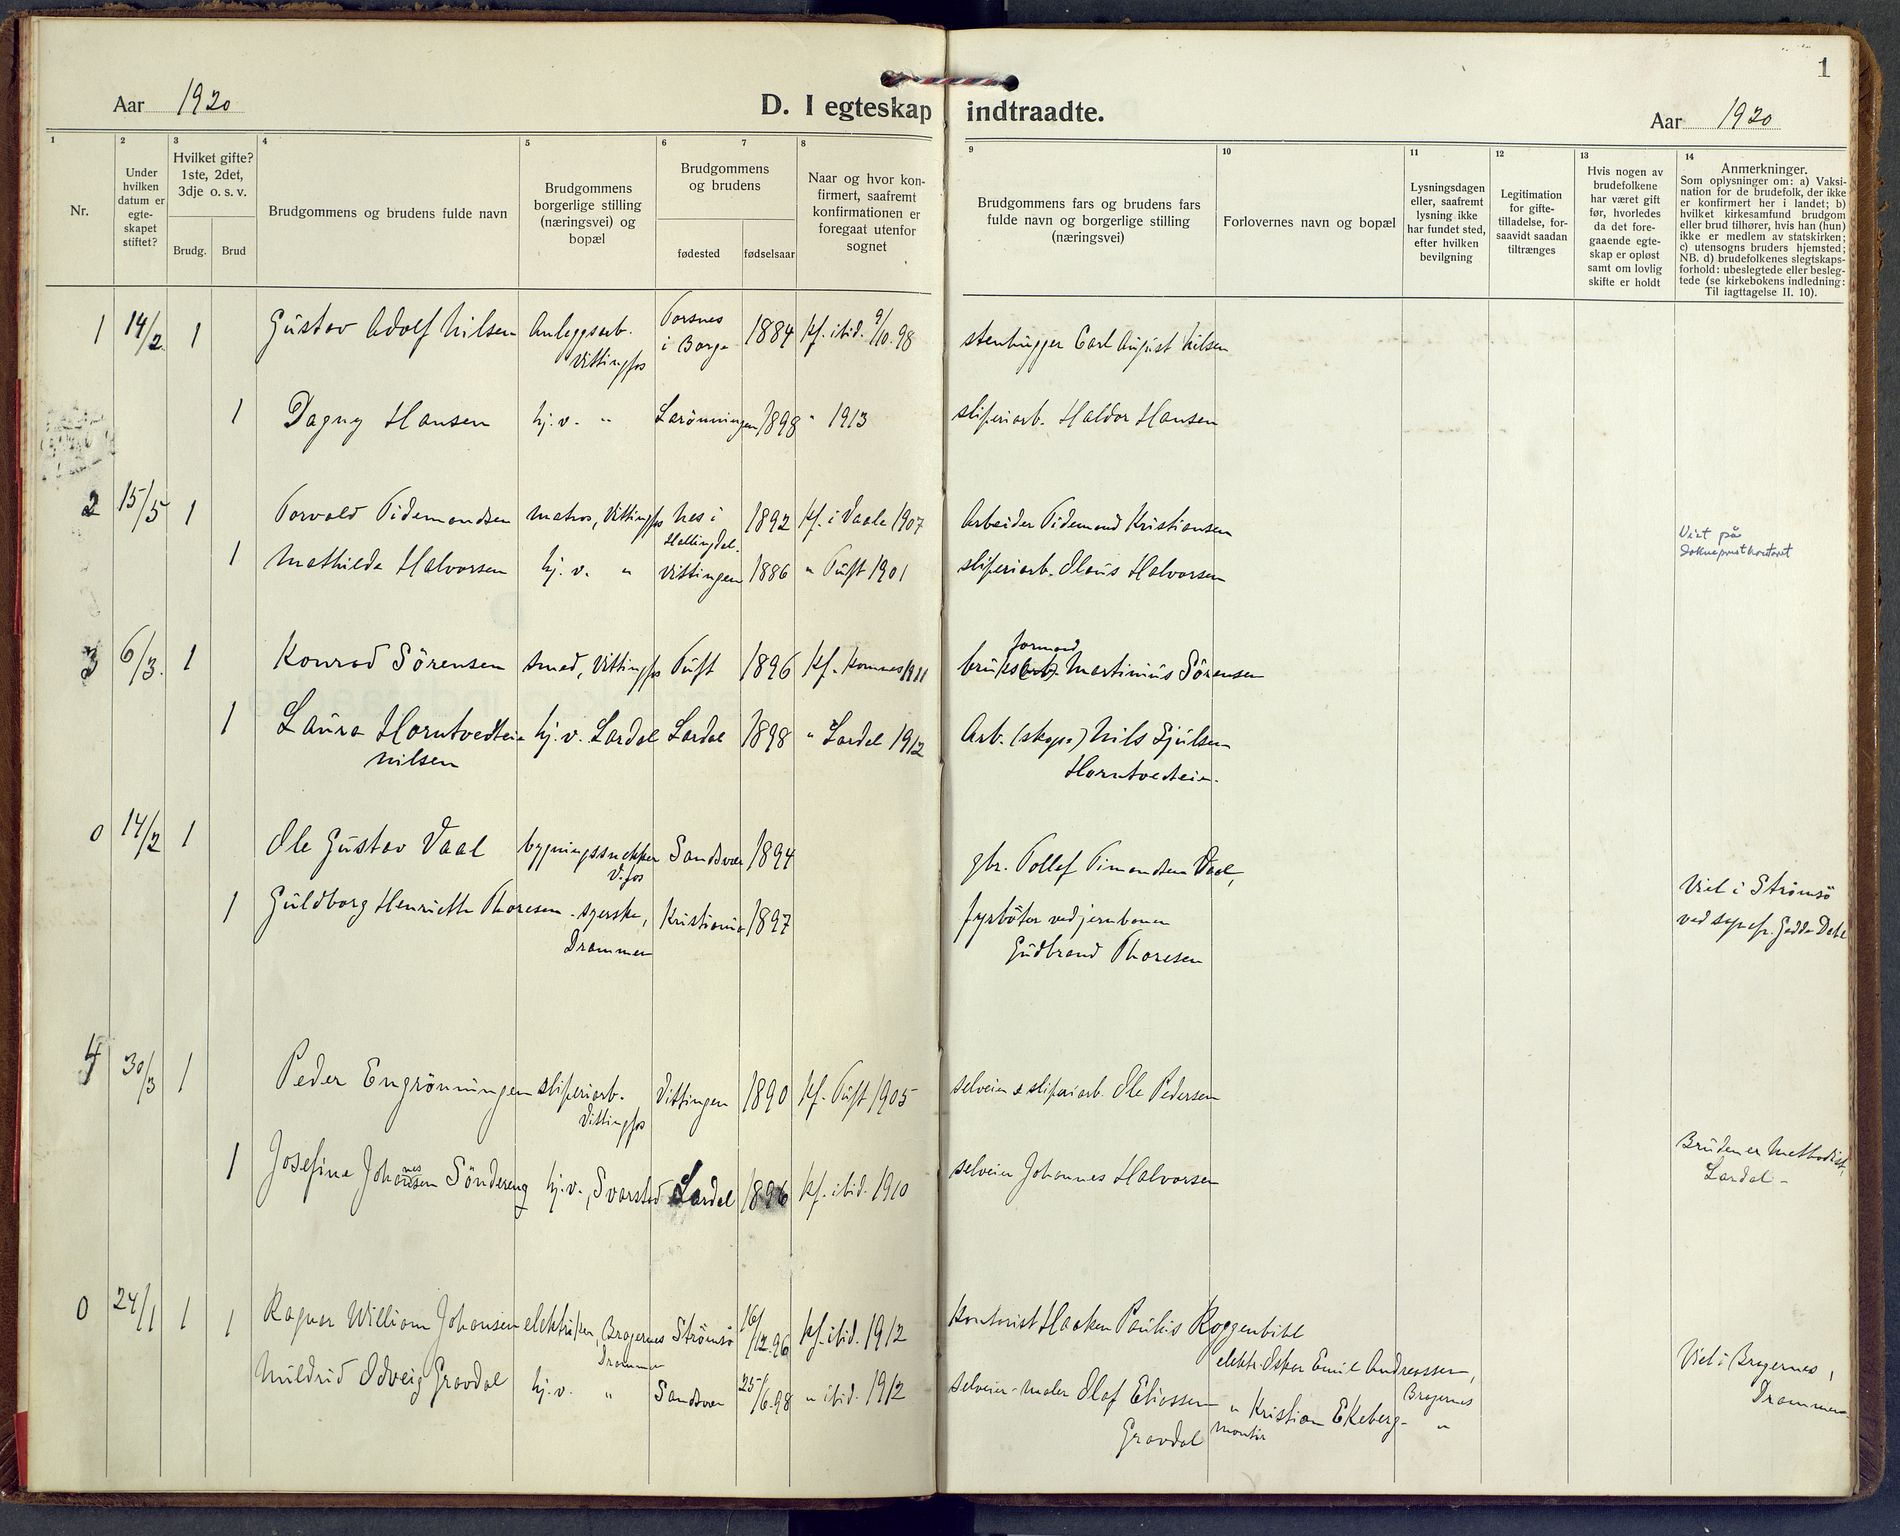 1
Aar 1920
D. I egteskap indtraadte.
Aar 1920
1
Nr.
2
Under
hvilken
datum er
egte-
skapet
stiftet?
3
Hvilket gifte?
1ste, 2det,
3dje o. s. v.
Brudg.
Brud
4
Brudgommens og brudens fulde navn
5
Brudgommens
borgerlige stilling
(næringsvei) og
bopæl
6 7
Brudgommens
og brudens
fødested
fødselsaar
8
Naar og hvor kon-
firmert, saafremt
konfirmationen er
foregaat utenfor
sognet
9
Brudgommens fars og brudens fars
fulde navn og borgerlige stilling
(næringsvei)
10
Forlovernes navn og bopæl
11
Lysningsdagen
eller, saafremt
lysning ikke
har fundet sted,
efter hvilken
bevilgning
12
Legitimation
for gifte-
tilladelse, for-
saavidt saadan
tiltrænges
13
Hvis nogen av
brudefolkene
har været gift
før, hvorledes
da det fore-
gaaende egte-
skap er opløst
samt om lovlig
skifte er holdt
14
Anmerkninger.
Som oplysninger om: a) Vaksi-
nation for de brudefolk, der ikke
er konfirmert her i landet; b)
hvilket kirkesamfund brudgom
eller brud tilhører, hvis han (hun)
ikke er medlem av statskirken;
c) utensogns bruders hjemsted;
NB. d) brudefolkenes slegtskaps-
forhold: ubeslegtede eller besleg-
tede (se kirkebokens indledning:
Til iagttagelse II. 10).
1 14/2 1 Gustav Adolf Nilsen Anleggsarb. Vittingfos Torsnes i Borge 1884 kf. ibid. 9/10.98 stenhugger Carl August Nilsen
1 Dagny Hansen hj.v. " Larønningen 1898 " 1913 sliperiarb. Haldor Hansen
2 15/5 1 Torvald Tidemandsen matros, Vittingfos Nes i Hallingdal. 1892 kf. i Vaale 1907 Arbeider Tidemand Kristiansen Viet på
1 Mathilde Halvorsen hj.v. " Vittingen 1886 " Tuft 1901 sliperiarb. Olaus Halvorsen
3 6/3. 1 Konrad Sörensen smed, Vittingfos Tuft 1896 kf. Komnes 1911 bruksarb. formand Martinius Sörensen
1 Laura Horntvedteie Nilsen hj.v. Lardal Lardal 1898 " Lardal 1912 Arb. (skogs) Nils Gjulsen
Horntvedteie.
0 14/2 1 Ole Gustav Vaal bygningssnekker V.fos Sandsvær 1894 gbr. Tollef Timandsen Vaal,
1 Guldborg Henriette Thoresen syerske, Drammen Kristiania 1897 fyrbøter ved jernbanen
Gudbrand Thoresen
Viet i Strömsö
ved sogepr. Gedde Dahl
4 30/3 1 Peder Engrönningen sliperiarb. Vittingfos Vittingen 1890 kf. Tuft 1905 selveier & sliperiarb. Ole Pedersen
1 Josefine Johannessen Söndereng hj.v., Svarstad Lardal 1896 kf. ibid. 1910 selveier Johannes Halvorsen
Bruden er Methodist,
Lardal -
0 24/1 1 1 Ragnar William Johansen elektriker, Bragernes Drammen Strömsö 16/12.96 kf. ibid. 1912 kontorist Haaken Paulus Roggenbihl
elektriker Emil Andreassen,
Bragernes
Viet i Bragernes,
Drammen
Mildrid Odveig Gravdal hj.v. " Sandsvær 25/6.98 " ibid. 1912 selveier-maler Olaf Eliassen
Gravdal
montør " Kristian Ekeberg - "